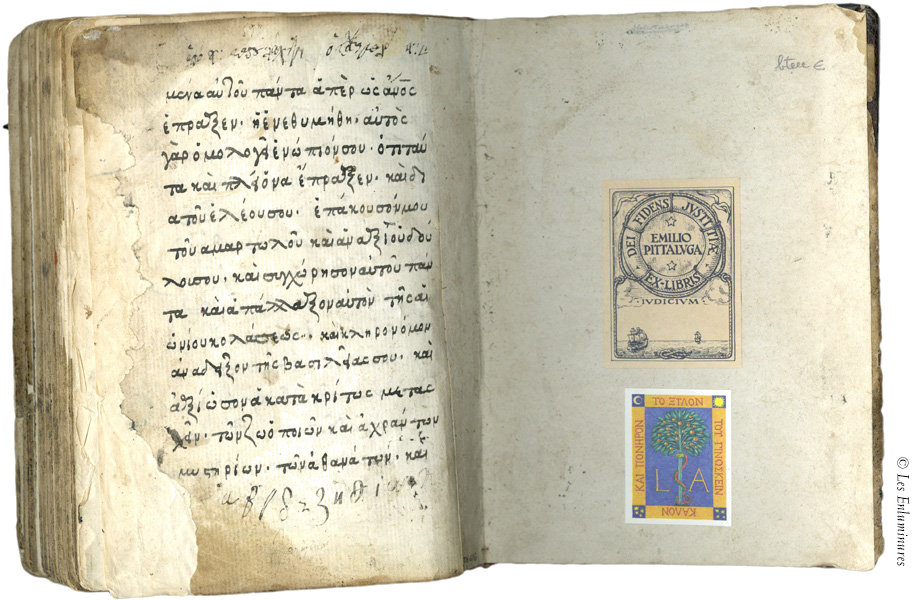 μενα αὐτοῦ πάντα ἅπερ ὡς ἄνος
ἔπραξεν· ἢ ἐνεθυμήθη· αὐτὸς
γὰρ ὁμολογεῖ ἐνώπιόν σου· ὅτι ταῦ
τα καὶ πλείονα ἔπραξεν· καὶ δι
α τοῦ ἐλέους σου· ἐπάκουσόν μου
τοῦ ἁμαρτωλοῦ καὶ ἀναξίου δού
λου σου· καὶ συγχώρησον αὐτοῦ πάν
τα καὶ ἀπάλλαξον αὐτὸν τῆς αἰ
ωνίου κολάσεως· καὶ κληρονόμον
ἀνάδειξον τῆς βασιλείας σου· καὶ
ἀξίωσον ἀκατακρίτως μετασ
χεῖν· τῶν ζωοποιῶν καὶ ἀχράντων
μυστηρίων· τῶν ἀθανάτων· καὶ
α β γ δ ε ζ η θ ι
btee €
DEI FIDENS JVSTITIÆ
EMILIO
PITTALVGA
EX-LIBRIS
IVDICIVM
ΤΟ ΞΥΛΟΝ
ΤΟΥ ΓΙΝΩΣΚΕΙΝ
ΚΑΛΟΝ
ΚΑΙ ΠΟΝΗΡΟΝ
L A
© Les Enluminures